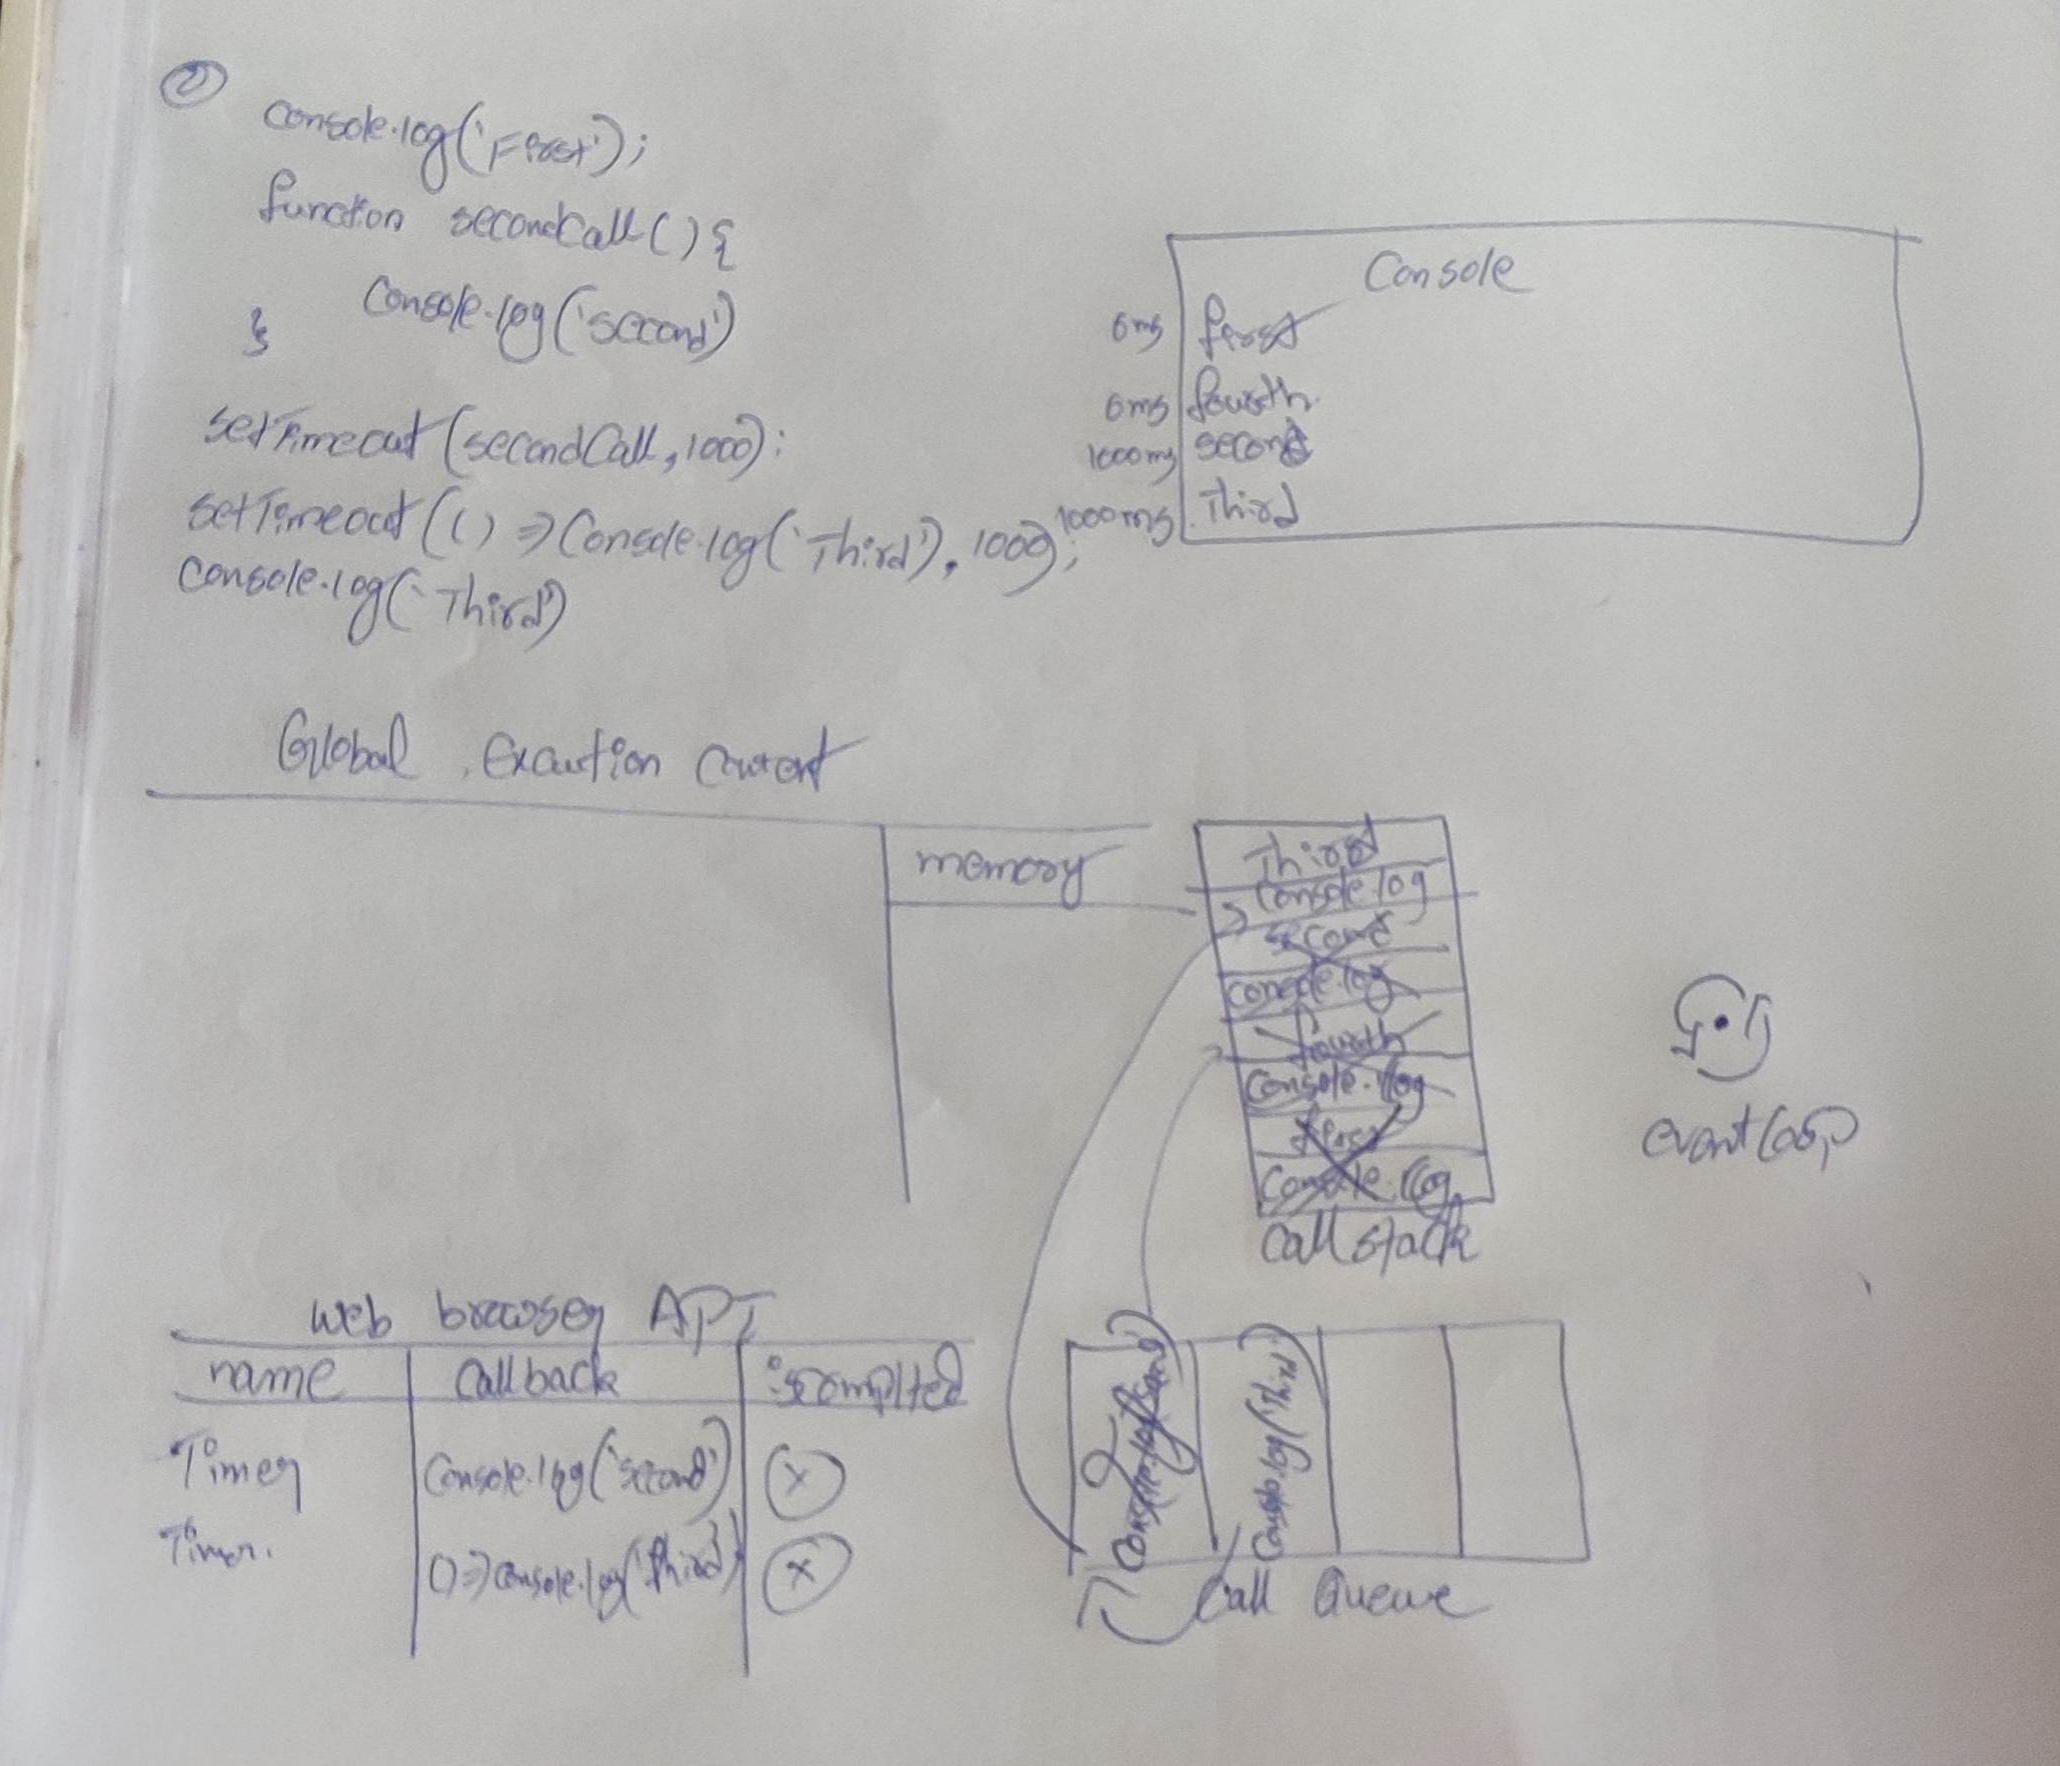 2
console.log('First');
function secondCall() {
console.log('second')
}
setTimeout(secondCall, 1000);
setTimeout(() => Console.log('Third'), 1000);
console.log('Third')
Console
0ms first
0ms fourth
1000ms second
1000ms Third
Global Excution Context
memory
Third
console.log
second
console.log
fourth
Console.log
first
Console.log
Call stack
event loop
web browser API
name Callback iscomplted
Timer Console.log('second') X
Timer () => console.log('third') X
Console.log('second')
Console.log('Third')
Call Queue